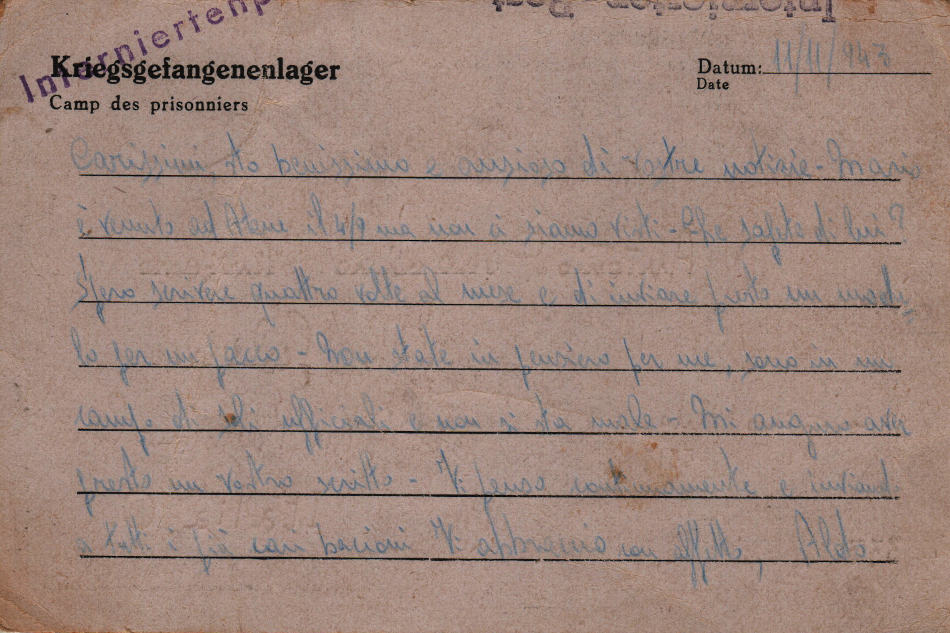 Internierten-Post
Interniertenp
Kriegsgefangenenlager
Camp des prisonniers
Datum: 11/11/943
Date
Carissimi, sto benissimo e ansioso di vostre notizie - Mario
è venuto ad Atene il 4/9 ma non ci siamo visti - Che sapete di lui?
Spero scrivere quattro volte al mese e di inviare presto un modu-
lo per un pacco - Non state in pensiero per me, sono in un
campo di soli ufficiali e non si sta male - Mi auguro aver
presto un vostro scritto - Vi penso continuamente e inviando
a tutti i più cari bacioni Vi abbraccio con affetto, Aldo